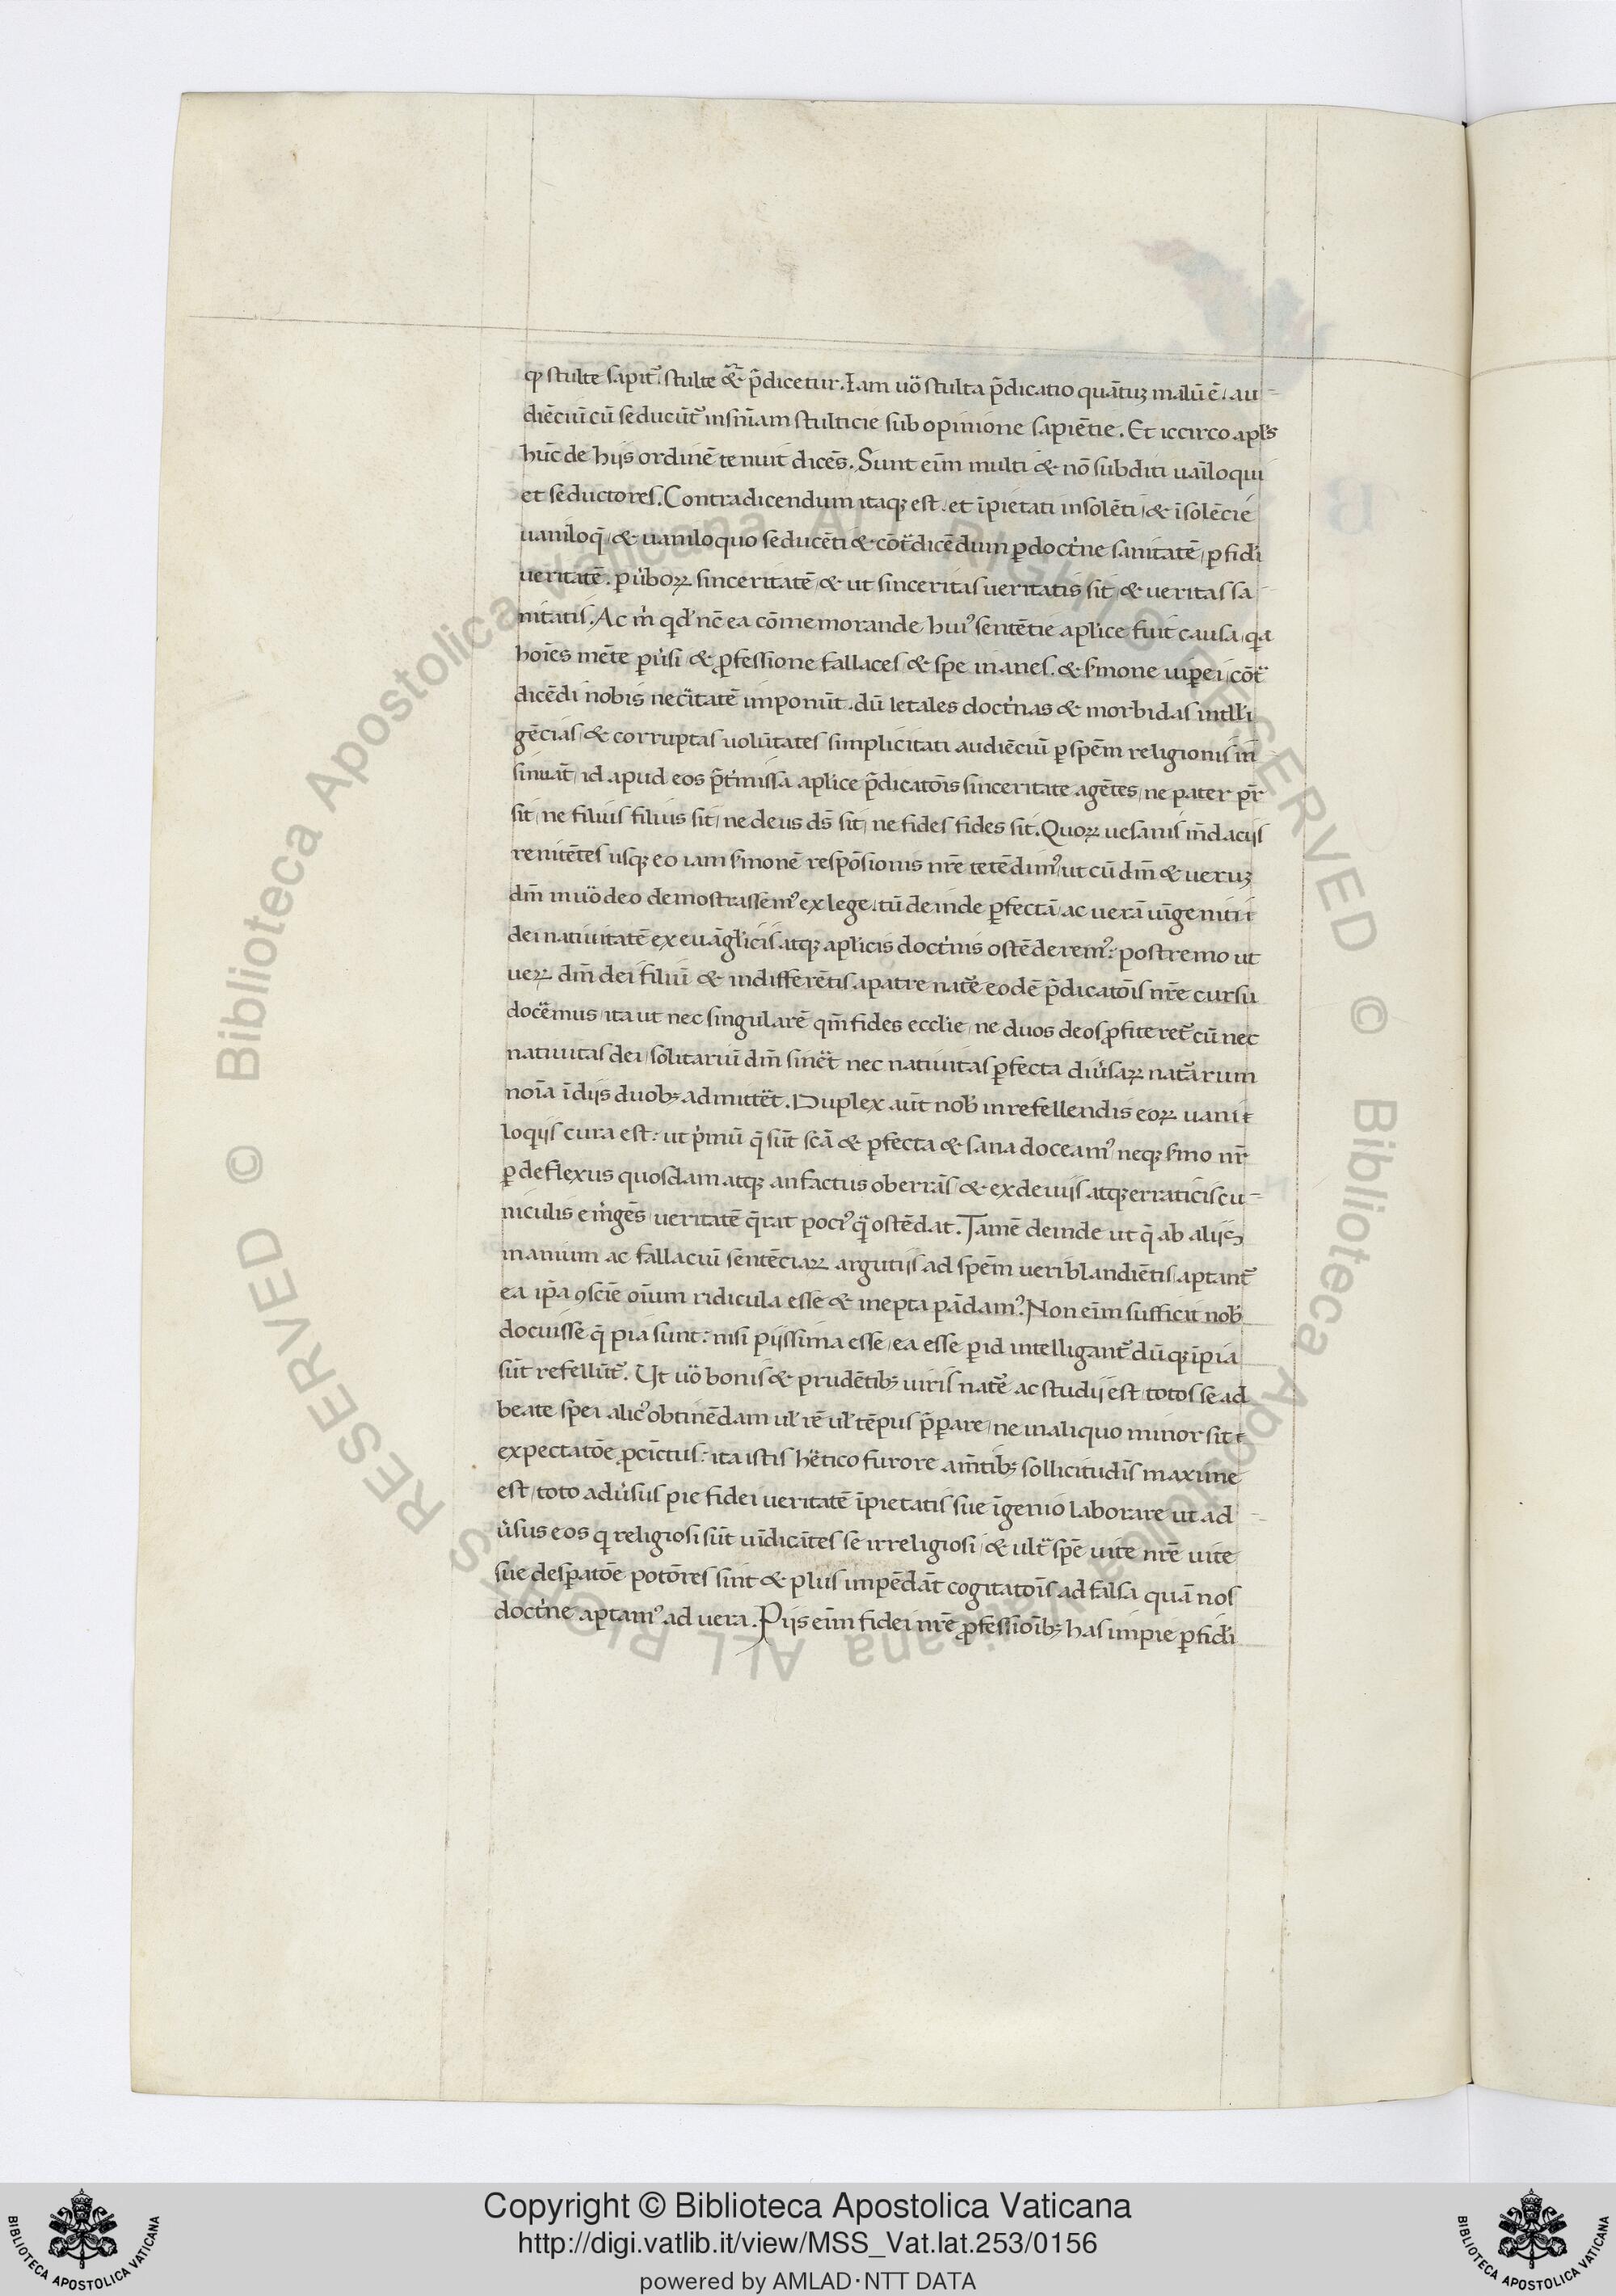 ꝙ stulte sapit᷑. stulte & p̄dicetur. Iam uo᷑ stulta p̄dicatio quātuꝫ malū ē, au-
diēciū cū seducūt᷑ in sn̄iam stulticie sub opinione sapiētie. Et iccirco apl's
hūc de hijs ordinē tenuit dicēs. Sunt eīm multi & nō subditi uaīloqui
et seductores. Contradicendum itaqꝫ est. et īpietati insolēti, & īsolēcie
uaniloq̄, & uaniloquo seducēti & cōt᷑dicēdum ꝑ doct'ne sanitatē, ꝑ fidei
veritatē. ꝑ u'boꝝ sinceritatē, & ut sinceritas ueritatis sit, & ueritas sa
nitatis. Ac m' qd' nc̄ ea cōmemorande hui᷒ sentētie aplice fuit causa, qa
hoīes mēte ꝑu'si, & ꝓfessione fallaces, & spe inanes. & s'mone uiꝑei, cōt᷑
dicēdi nobis neci᷑tatē imponūt. dū letales doct'nas & morbidas intlli
gēcias, & corruptas uolūtates simplicitati audiēciū ꝑ spēm religionis in̄
sinuāt, id apud eos p̄t'missa aplice p̄dicatōis sinceritate agētes, ne pater pr̄
sit, ne filius filius sit, ne deus ds̄ sit, ne fides fides sit. Quoꝝ uesanis m̄dacijs
renitētes usqꝫ eo iam s'monē respōsionis nr̄e tetēdim᷒, ut cū dm̄ & ueruꝫ
dm̄ in uo᷑ deo demostrassem᷒ ex lege, tū deinde ꝑfectā, ac uerā uīgeniti
dei natiuitatē ex euāgl'icis atqꝫ aplicis doct'nis ostēderem᷒: postremo ut
ueꝝ dm̄ dei filiū & indifferētis a patre nat᷑e eodē p̄dicatōis nr̄e cursu
doce᷑mus, ita ut nec singularē qm̄ fides eccl'ie, ne duos deos ꝓfiteret᷑ cū nec
natiuitas dei, solitariū dm̄ sine᷑t nec natiuitas ꝑfecta diu'saꝝ nat᷑arum
noīa ī dijs duobꝫ admitte᷑t. Duplex aūt nob' in refellendis eoꝝ uani
loqijs cura est: ut p'mū q̄ sūt scā & ꝑfecta & sana doceam᷒ neqꝫ s'mo nr̄
ꝑ deflexus quosdam atqꝫ anfactus oberrās, & ex deuijs atqꝫ erraticis cu-
niculis em'gēs, ueritatē q̄rat poci᷒ q̄ ostēdat. Tamē deinde ut q̄ ab alijs
inanium ac fallaciū sentēciaꝝ argutijs ad spēm ueri blandiētis, aptant᷑
ea ip̄a ꝯsciē oīum ridicula esse & inepta pādam᷒. Non eīm sufficit nob'
docuisse q̄ pia sunt: nisi pijssima esse, ea esse ꝑ id intelligant᷑ dū qꝫ īpia
sūt refellūt᷑. Ut uo᷑ bonis & prudētibꝫ uiris nat᷑e ac studij est, totos se ad
beate spei alic᷒ obtinēdam ul' rē ul' tēpus p̄ꝑare, ne in aliquo minor sit
expectatōe ꝓcīctus: ita istis he᷑tico furore am̄tibꝫ sollicitudīs maxime
est, toto adu'sus pie fidei ueritatē īpietatis sue īgenio laborare ut ad
u'sus eos q' religiosi sūt uīdicātes se irreligiosi, & ult᷑ spē uite nr̄e uite
sue desꝑatōe potōres sint & plus impēdāt cogitatōis ad falsa quā nos
doct'ne aptam᷒ ad uera. Pijs eīm fidei nr̄e ꝓfessiōibꝫ has impie ꝑfidi
Copyright © Biblioteca Apostolica Vaticana
http://digi.vatlib.it/view/MSS_Vat.lat.253/0156
powered by AMLAD·NTT DATA
BIBLIOTECA APOSTOLICA VATICANA
BIBLIOTECA APOSTOLICA VATICANA
© Biblioteca Apostolica Vaticana ALL RIGHTS RESERVED © Biblioteca Apostolica Vaticana ALL RIGHTS RESERVED